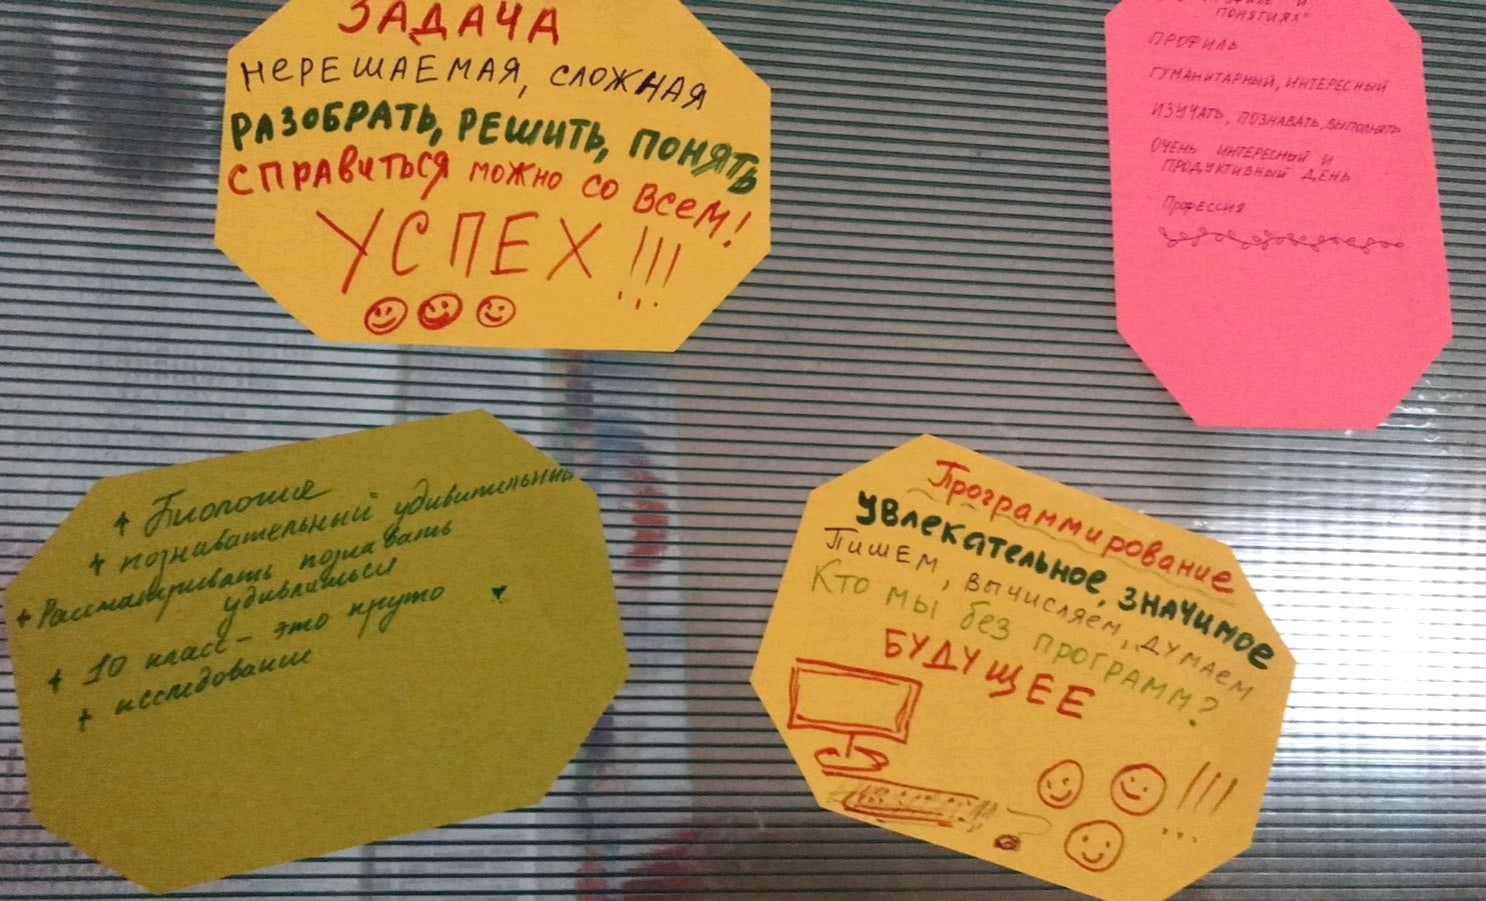 ЗАДАЧА
НЕРЕШАЕМАЯ, СЛОЖНАЯ
РАЗОБРАТЬ, РЕШИТЬ, ПОНЯТЬ
СПРАВИТЬСЯ МОЖНО СО ВСЕМ!
УСПЕХ!!!
И
ПОНЯТИЯ"
ПРОФИЛЬ
ГУМАНИТАРНЫЙ, ИНТЕРЕСНЫЙ
ИЗУЧАТЬ, ПОЗНАВАТЬ, ВЫПОЛНЯТЬ
ОЧЕНЬ ИНТЕРЕСНЫЙ И
ПРОДУКТИВНЫЙ ДЕНЬ
Профессия
+ Биология
+ познавательный удивительный
+ Рассматривать познавать
удивляться
+ 10 класс - это круто
+ исследование
Программирование
увлекательное, значимое
Пишем, вычисляем, думаем
Кто мы без программ?
БУДУЩЕЕ
!!!